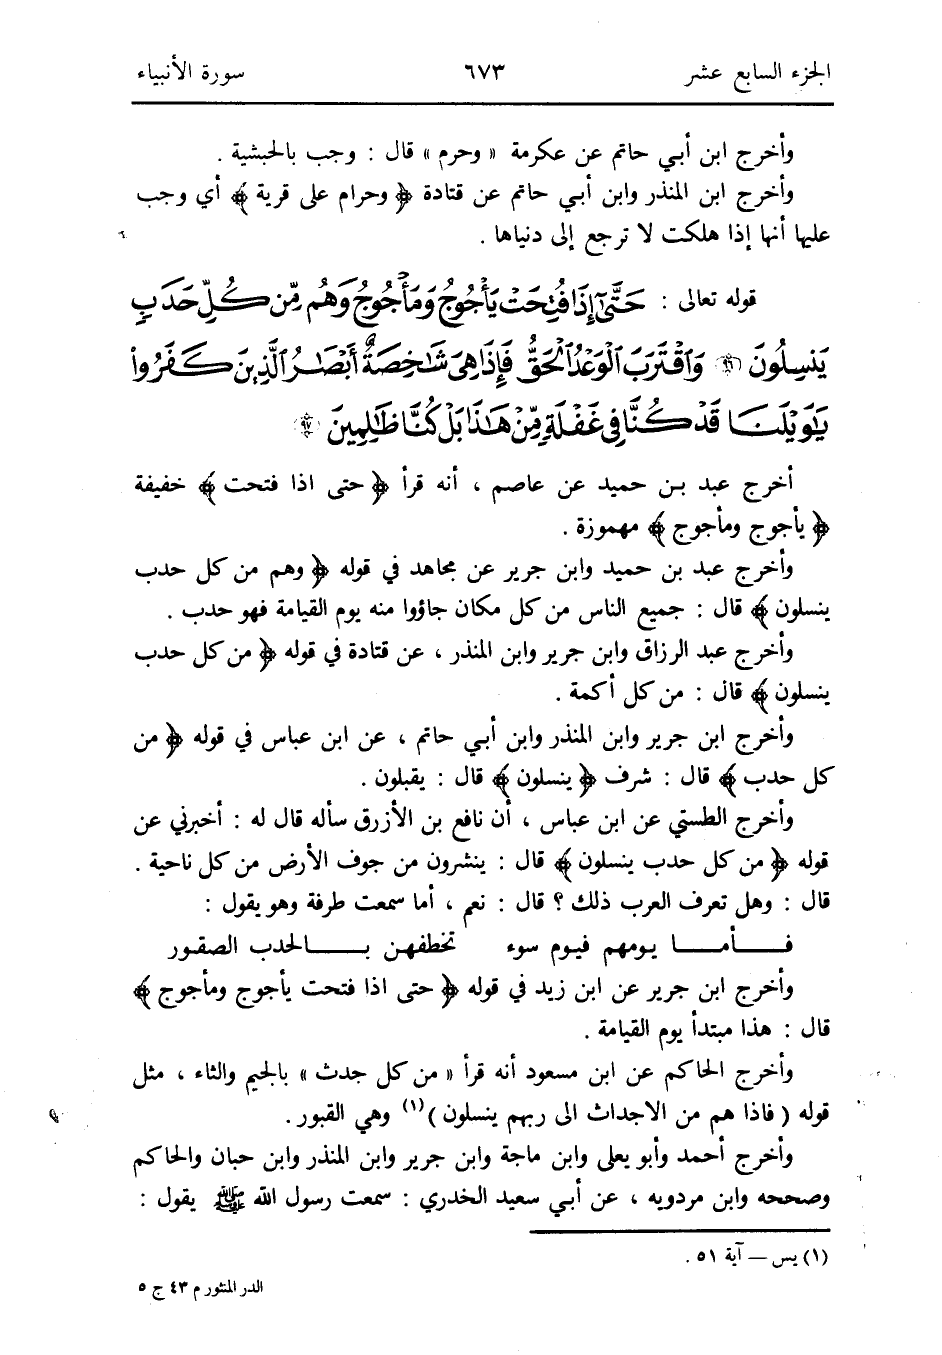 الجزء السابع عشر ٦٧٣ سورة الأنبياء
وأخرج ابن أبي حاتم عن عكرمة « وحرم » قال : وجب بالحبشية .
وأخرج ابن المنذر وابن أبي حاتم عن قتادة ﴿ وحرام على قرية ﴾ أي وجب
عليها أنها إذا هلكت لا ترجع إلى دنياها .
قوله تعالى : حَتَّىٰٓ إِذَا فُتِحَتْ يَأْجُوجُ وَمَأْجُوجُ وَهُم مِّن كُلِّ حَدَبٍ
يَنسِلُونَ ﴿٩٦﴾ وَٱقْتَرَبَ ٱلْوَعْدُ ٱلْحَقُّ فَإِذَا هِىَ شَـٰخِصَةٌ أَبْصَـٰرُ ٱلَّذِينَ كَفَرُوا۟
يَـٰوَيْلَنَا قَدْ كُنَّا فِى غَفْلَةٍ مِّنْ هَـٰذَا بَلْ كُنَّا ظَـٰلِمِينَ ﴿٩٧﴾
أخرج عبد بن حميد عن عاصم ، أنه قرأ ﴿ حتى اذا فتحت ﴾ خفيفة
﴿ يأجوج ومأجوج ﴾ مهموزة .
وأخرج عبد بن حميد وابن جرير عن مجاهد في قوله ﴿ وهم من كل حدب
ينسلون ﴾ قال : جميع الناس من كل مكان جاؤوا منه يوم القيامة فهو حدب .
وأخرج عبد الرزاق وابن جرير وابن المنذر ، عن قتادة في قوله ﴿ من كل حدب
ينسلون ﴾ قال : من كل أكمة .
وأخرج ابن جرير وابن المنذر وابن أبي حاتم ، عن ابن عباس في قوله ﴿ من
كل حدب ﴾ قال : شرف ﴿ ينسلون ﴾ قال : يقبلون .
وأخرج الطستي عن ابن عباس ، أن نافع بن الأزرق سأله قال له : أخبرني عن
قوله ﴿ من كل حدب ينسلون ﴾ قال : ينشرون من جوف الأرض من كل ناحية .
قال : وهل تعرف العرب ذلك ؟ قال : نعم ، أما سمعت طرفة وهو يقول :
فـــأمـــا يومهم فيوم سوء تخطفهن بـــالحدب الصقور
وأخرج ابن جرير عن ابن زيد في قوله ﴿ حتى اذا فتحت يأجوج ومأجوج ﴾
قال : هذا مبتدأ يوم القيامة .
وأخرج الحاكم عن ابن مسعود أنه قرأ « من كل جدث » بالجيم والثاء ، مثل
قوله ( فاذا هم من الاجداث الى ربهم ينسلون )(١) وهي القبور .
وأخرج أحمد وأبو يعلى وابن ماجة وابن جرير وابن المنذر وابن حبان والحاكم
وصححه وابن مردويه ، عن أبي سعيد الخدري : سمعت رسول الله ﷺ يقول :
(١) يس — آية ٥١ .
الدر المنثور م ٤٣ ج ٥